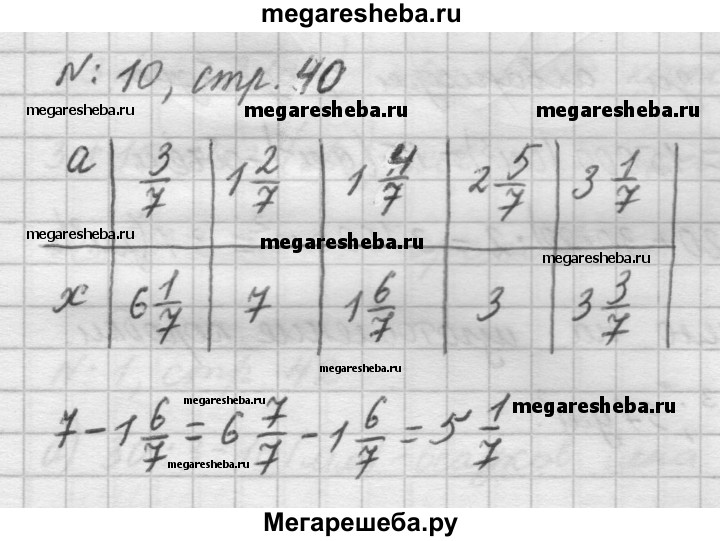 megaresheba.ru
№: 10, стр. 40
megaresheba.ru megaresheba.ru megaresheba.ru
a | 3/7 | 1 2/7 | 1 4/7 | 2 5/7 | 3 1/7
megaresheba.ru megaresheba.ru megaresheba.ru
x | 6 1/7 | 7 | 1 6/7 | 3 | 3 3/7
megaresheba.ru
megaresheba.ru megaresheba.ru
7 - 1 6/7 = 6 7/7 - 1 6/7 = 5 1/7
megaresheba.ru
Мегарешеба.ру